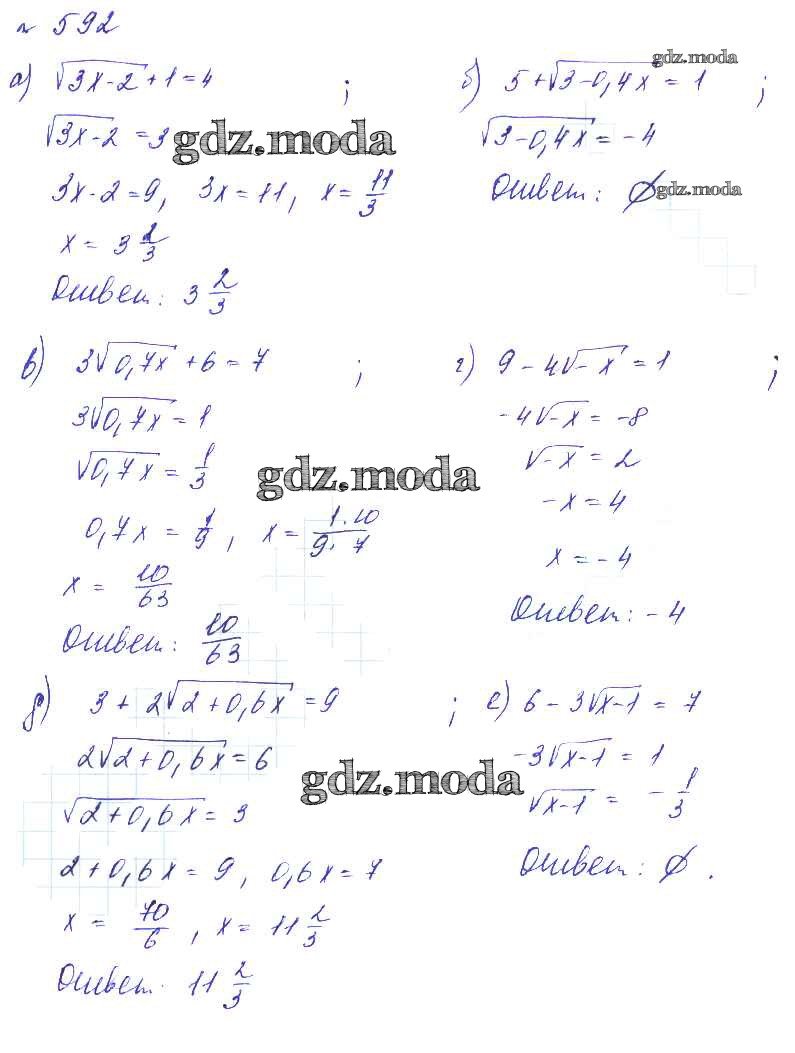 № 592
а) √(3x-2) + 1 = 4 ;
√(3x-2) = 3
3x-2 = 9, 3x = 11, x = 11/3
x = 3 2/3
Ответ: 3 2/3
б) 5 + √(3-0,4x) = 1 ;
√(3-0,4x) = -4
Ответ: ∅
в) 3√(0,7x) + 6 = 7 ;
3√(0,7x) = 1
√(0,7x) = 1/3
0,7x = 1/9, x = 1·10/9·7
x = 10/63
Ответ: 10/63
г) 9 - 4√(-x) = 1 ;
-4√(-x) = -8
√(-x) = 2
-x = 4
x = -4
Ответ: -4
д) 3 + 2√(2+0,6x) = 9 ;
2√(2+0,6x) = 6
√(2+0,6x) = 3
2+0,6x = 9, 0,6x = 7
x = 70/6, x = 11 2/3
Ответ. 11 2/3
е) 6 - 3√(x-1) = 7
-3√(x-1) = 1
√(x-1) = -1/3
Ответ: ∅.
gdz.moda
gdz.moda
gdz.moda
gdz.moda
gdz.moda